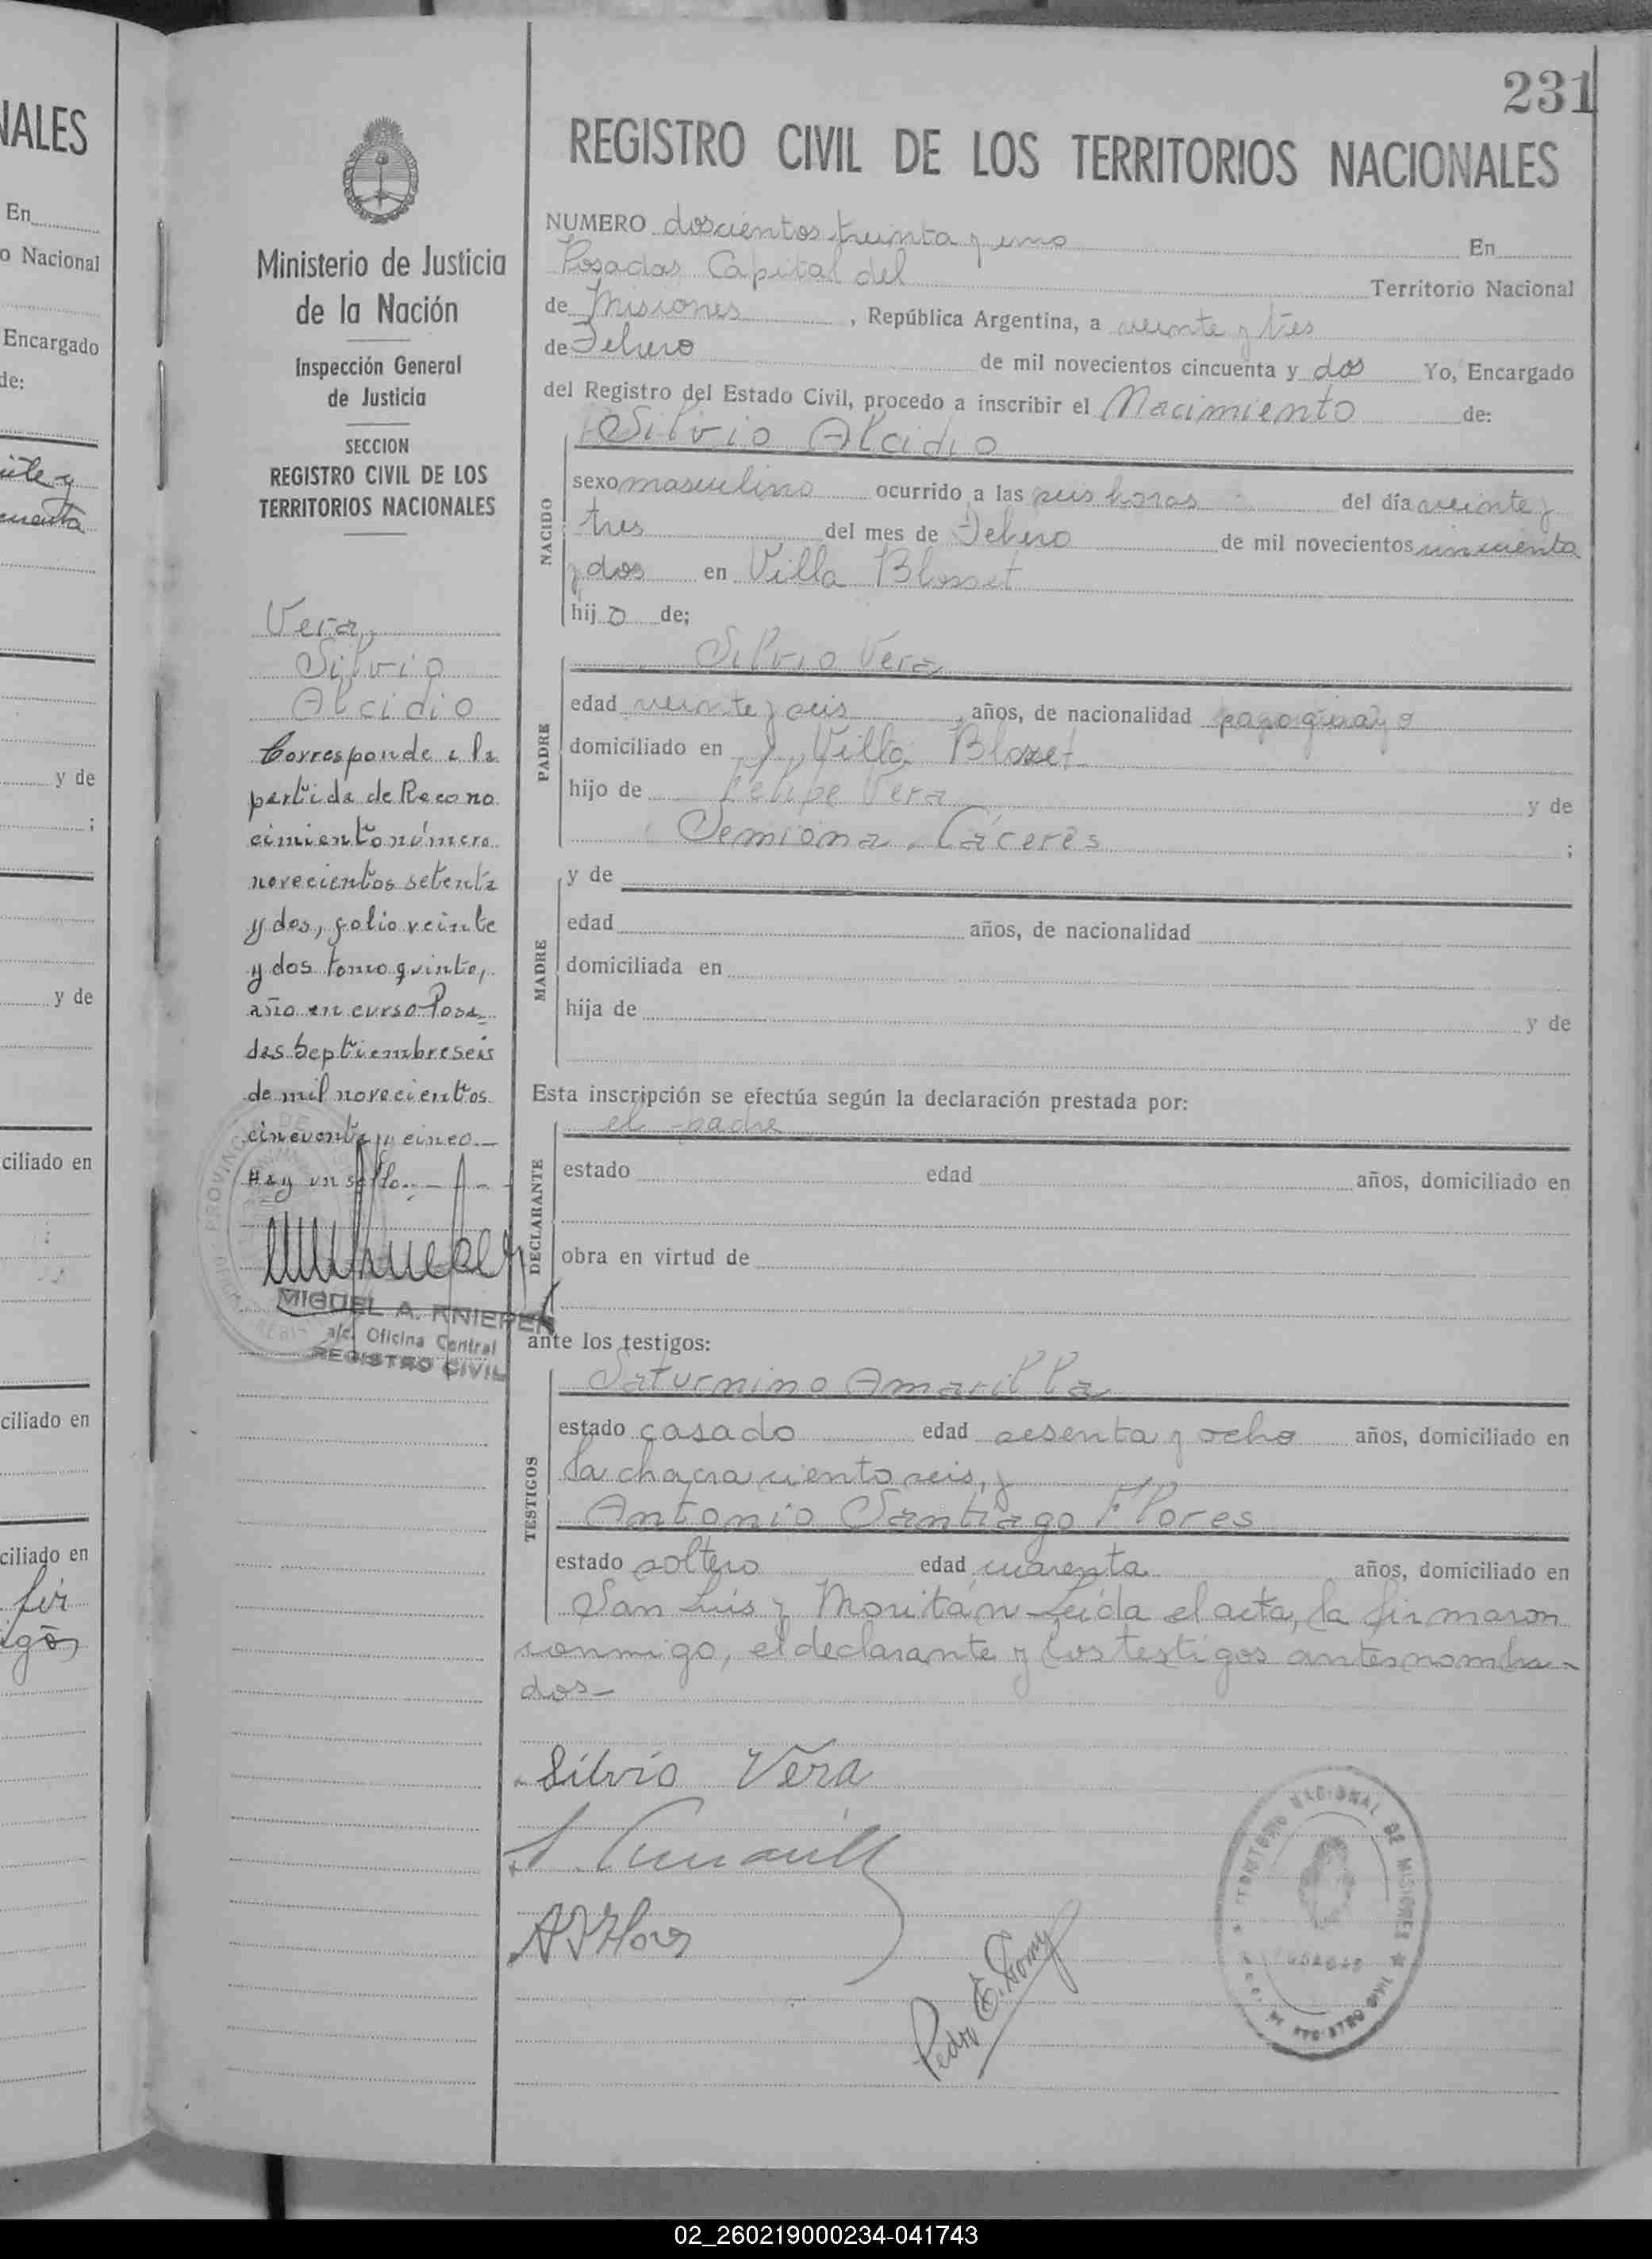 231
REGISTRO CIVIL DE LOS TERRITORIOS NACIONALES
NUMERO doscientos treinta y uno En
Posadas Capital del Territorio Nacional
de Misiones, República Argentina, a veinte y tres
de Febrero de mil novecientos cincuenta y dos Yo, Encargado
del Registro del Estado Civil, procedo a inscribir el Nacimiento de:
NACIDO
Silvio Alcidio
sexo masculino ocurrido a las seis horas del día veinte y
tres del mes de Febrero de mil novecientos cincuenta
y dos en Villa Blosset
hijo de;
PADRE
Silvio Vera
edad veinte y seis años, de nacionalidad paraguayo
domiciliado en Villa Blosset
hijo de Felipe Vera y de
Semiona Cáceres ;
MADRE
y de
edad años, de nacionalidad
domiciliada en
hija de y de
Esta inscripción se efectúa según la declaración prestada por:
DECLARANTE
el padre
estado edad años, domiciliado en
obra en virtud de
ante los testigos:
TESTIGOS
Saturnino Amarilla
estado casado edad sesenta y ocho años, domiciliado en
la chacra ciento seis, y
Antonio Santiago Flores
estado soltero edad cuarenta años, domiciliado en
San Luis y Moritán Leída el acta, la firmaron
conmigo, el declarante y los testigos antes nombra-
dos-
Silvio Vera
A S Flores
Pedro E.
TERRITORIO NACIONAL DE MISIONES
REGISTRO CIVIL
Ministerio de Justicia
de la Nación
Inspección General
de Justicia
SECCION
REGISTRO CIVIL DE LOS
TERRITORIOS NACIONALES
Vera,
Silvio
Alcidio
Corresponde a la
partida de Recono
cimiento número
novecientos setenta
y dos, folio veinte
y dos tomo quinto,
año en curso Posa-
das Septiembre seis
de mil novecientos
cincuenta y cinco.-
Hay un sello.-
MIGUEL A. KNIEPER
a/c. Oficina Central
REGISTRO CIVIL
NALES
En
o Nacional
Encargado
de:
y de
;
y de
ciliado en
ciliado en
ciliado en
02_260219000234-041743